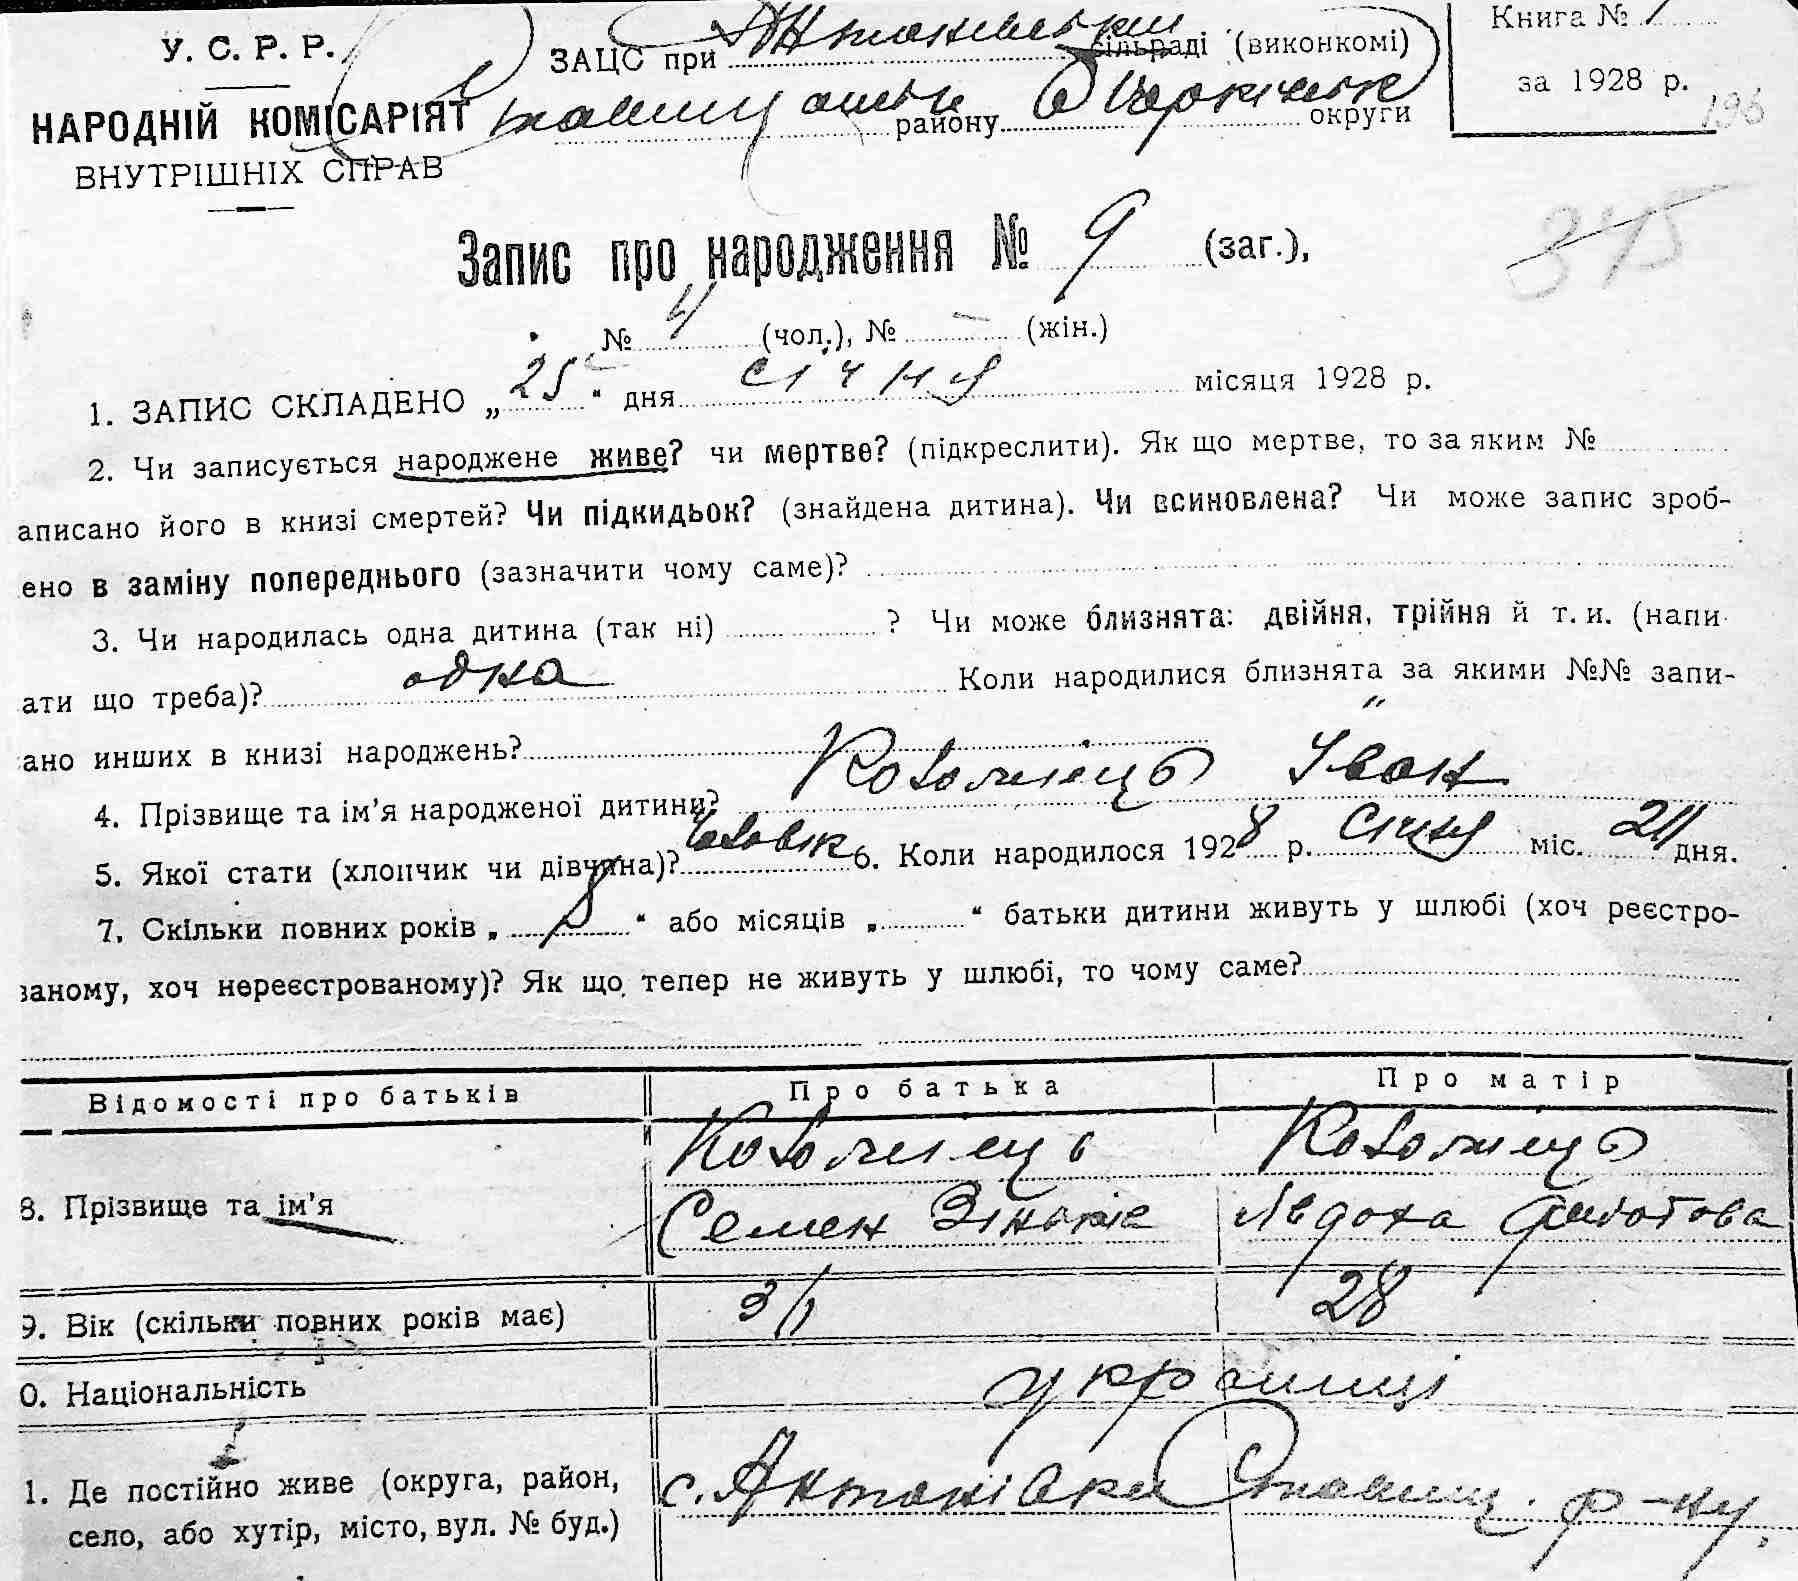 У. С. Р. Р.
НАРОДНІЙ КОМІСАРІЯТ
ВНУТРІШНІХ СПРАВ
ЗАЦС при Антонівській сільраді (виконкомі)
району округи
Книга № 1
за 1928 р.
196
Запис про народження № 9 (заг.),
345
№ 4 (чол.), № – (жін.)
1. ЗАПИС СКЛАДЕНО „ 25 “ дня січня місяця 1928 р.
2. Чи записується народжене живе? чи мертве? (підкреслити). Як що мертве, то за яким №
аписано його в книзі смертей? Чи підкидьок? (знайдена дитина). Чи всиновлена? Чи може запис зроб-
ено в заміну попереднього (зазначити чому саме)?
3. Чи народилась одна дитина (так ні) ? Чи може близнята: двійня, трійня й т. и. (напи
ати що треба)? одна Коли народилися близнята за якими №№ запи-
ано инших в книзі народжень? "
4. Прізвище та ім’я народженої дитини? Іван
5. Якої стати (хлопчик чи дівчина)? чоловік 6. Коли народилося 1928 р. січня міс. дня.
7. Скільки повних років „ 8 “ або місяців „ “ батьки дитини живуть у шлюбі (хоч реєстро-
ваному, хоч нереєстрованому)? Як що тепер не живуть у шлюбі, то чому саме?
Відомості про батьків Про батька Про матір
8. Прізвище та ім’я
Семен Явдоха
9. Вік (скільки повних років має) 31 28
0. Національність українці
1. Де постійно живе (округа, район,
село, або хутір, місто, вул. № буд.)
с. Антонівки Ставищ. р-ну.